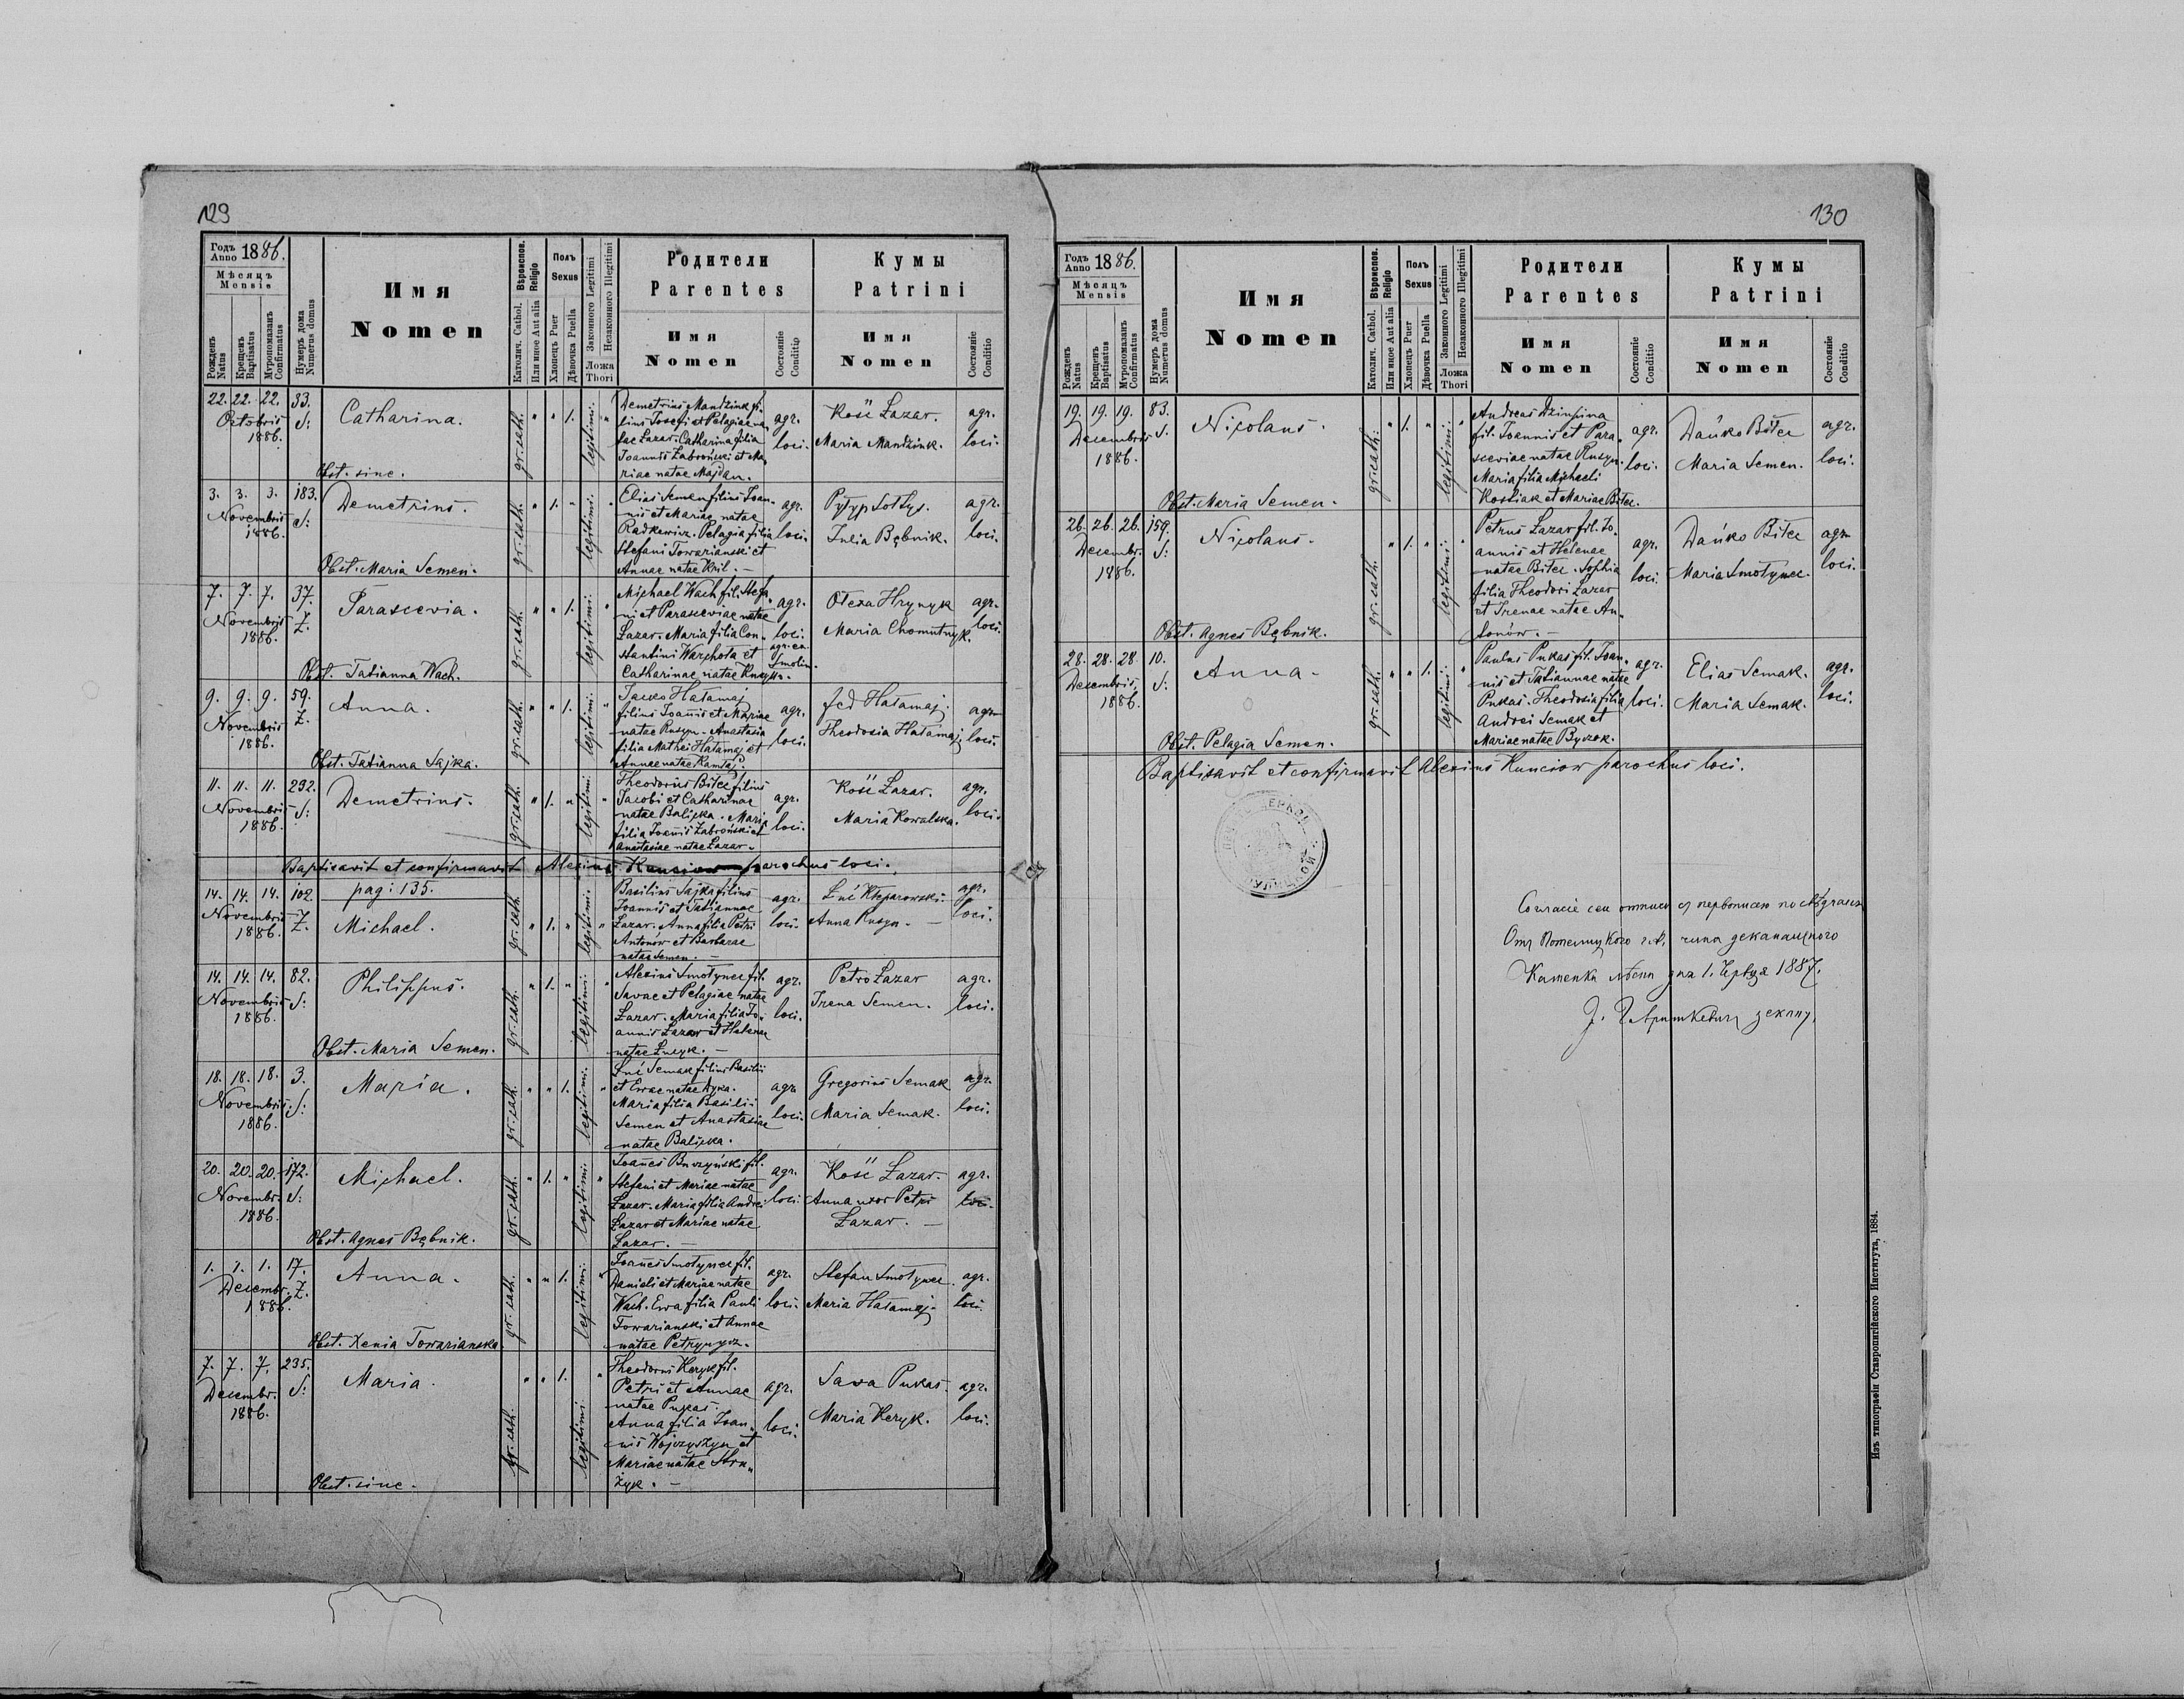 129
Годъ Anno 1886.
Мѣсяцъ Mensis
Рожденъ Natus
Крещенъ Baptisatus
Мѵропомазанъ Confirmatus
Нумеръ дома Numerus domus
Имя
Nomen
Вѣроиспов. Religio
Католич. Cathol.
Или иное Aut alia
Полъ Sexus
Хлопецъ Puer
Дѣвочка Puella
Законного Legitimi
Незаконного Illegitimi
Ложа Thori
Родители
Parentes
Имя
Nomen
Состояніе Conditio
Кумы
Patrini
Имя
Nomen
Состояніе Conditio
22. 22. 22. 33.
Octobris S:
1886.
Catharina.
Obst. sine.
gr. cath. " " 1. legitimi. "
Demetrius Mandziuk fi-
lius Josefi et Pelagiae na-
tae Lazar. Catharina filia
Joannis Zabroński et Ma-
riae natae Majdan.
agr. loci.
Kość Łazar.
Maria Mandziuk.
agr. loci.
3. 3. 3. 183.
Novembris S:
1886.
Demetrius.
Obst. Maria Semen.
gr. cath. " 1. " legitimi.
Elias Semen filius Joan-
nis et Mariae natae
Radkewicz. Pelagia filia
Stefani Towarianski et
Annae natae Kril. —
agr. loci.
Pyłyp Sołtys.
Julia Bębnik.
agr. loci.
7. 7. 7. 37.
Novembris Z.
1886.
Parascevia.
Obst. Tatianna Wach.
gr. cath. " " 1. legitimi. "
Michael Wach fil. Stefa-
ni et Parasceviae natae
Lazar. Maria filia Con-
stantini Warchota et
Catharinae natae
agr. loci.
agr. ex Smolin.
Ołexa Hrynyk
Maria Chomutnyk.
agr. loci.
9. 9. 9. 59.
Novembris Z.
1886.
Anna.
Obst. Tatianna Sajka.
gr. cath. " " 1. legitimi. "
Jacko Hałamaj
filius Joannis et Mariae
natae Rusyn. Anastasia
filia Mathei Hałamaj et
Annae natae
agr. loci.
Fed Hałamaj.
Theodosia Hałamaj.
agr. loci.
11. 11. 11. 292.
Novembris S:
1886.
Demetrius.
gr. cath. " 1. " legitimi. "
Theodorus Bitec filius
Jacobi et Catharinae
natae Balicka. Maria
filia Joannis Zabroński et
Anastasiae natae Łazar.
agr. loci.
Kość Łazar.
Maria Kowalska.
agr. loci.
Baptisavit et confirmavit Alexius Kunciow parochus loci.
14. 14. 14. 102.
Novembris Z.
1886.
pag: 135.
Michael.
gr. cath. " 1. " legitimi. "
Basilius Sajka filius
Joannis et Tatiannae
Lazar. Anna filia Petri
Antonów et Barbarae
natae Semen. —
agr. loci.
Łuć Kłeparowski.
Anna Rusyn. —
agr. loci.
14. 14. 14. 82.
Novembris S:
1886.
Philippus.
Obst. Maria Semen.
gr. cath. " 1. " legitimi. "
Alexius Smotynec fil.
Savae et Pelagiae natae
Łazar. Maria filia Jo-
annis Lazar et Helenae
natae —
agr. loci.
Petro Łazar
Irena Semen.
agr. loci.
18. 18. 18. 3.
Novembris S:
1886.
Maria.
gr. cath. " " 1. legitimi. "
Łuć Semak filius Basilii
et Evae natae
Maria filia Basilii
Semen et Anastasiae
natae Balicka.
agr. loci.
Gregorius Semak
Maria Semak.
agr. loci.
20. 20. 20. 172.
Novembr. S:
1886.
Michael.
Obst. Agnes Bębnik.
gr. cath. " 1. " legitimi. "
Joannes Buczyński fil.
Stefani et Mariae natae
Lazar. Maria filia Andrei
Lazar et Mariae natae
Lazar. —
agr. loci.
Kość Łazar.
Anna uxor Petri
Łazar. —
agr. loci.
1. 1. 1. 17.
Decembr. Z.
1886.
Anna.
Obst. Xenia Towarianska.
gr. cath. " " 1. legitimi. "
Joannes Smotynec fil.
Danieli et Mariae natae
Wach. Eva filia Pauli
Towarianski et Annae
natae
agr. loci.
Stefan Smotynec.
Maria Hałamaj.
agr. loci.
7. 7. 7. 235.
Decembr. S:
1886.
Maria.
Obst. sine.
gr. cath. " " 1. legitimi. "
Theodorus Heryk fil.
Petri et Annae
natae Pukas.
Anna filia Joan-
nis et
Mariae natae
agr. loci.
Sava Pukas.
Maria Heryk.
agr. loci.
130
Годъ Anno 1886.
Мѣсяцъ Mensis
Рожденъ Natus
Крещенъ Baptisatus
Мѵропомазанъ Confirmatus
Нумеръ дома Numerus domus
Имя
Nomen
Вѣроиспов. Religio
Католич. Cathol.
Или иное Aut alia
Полъ Sexus
Хлопецъ Puer
Дѣвочка Puella
Законного Legitimi
Незаконного Illegitimi
Ложа Thori
Родители
Parentes
Имя
Nomen
Состояніе Conditio
Кумы
Patrini
Имя
Nomen
Состояніе Conditio
19. 19. 19. 83.
Decembris S.
1886.
Nicolaus.
Obst. Maria Semen.
gr. cath. " 1. " legitimi. "
Andreas
fil. Joannis et Para-
sceviae natae Rusyn.
Maria filia Michaeli
Kostiak et Mariae Bitec.
agr. loci.
Dańko Bitec
Maria Semen.
agr. loci.
26. 26. 26. 159.
Decembr. S:
1886.
Nicolaus.
Obst. Agnes Bębnik.
gr. cath. " 1. " legitimi. "
Petrus Lazar fil. Jo-
annis et Helenae
natae Bitec. Sophia
filia Theodori Lazar
et Irenae natae An-
tonów. —
agr. loci.
Dańko Bitec
Maria Smotynec.
agr. loci.
28. 28. 28. 10.
Decembris S:
1886.
Anna.
Obst. Pelagia Semen.
gr. cath. " " 1. legitimi. "
Paulus Pukas fil. Joan-
nis et Tatiannae natae
Pukas. Theodosia filia
Andrei Semak et
Mariae natae Byczok.
agr. loci.
Elias Semak.
Maria Semak.
agr. loci.
Baptisavit et confirmavit Alexius Kunciow parochus loci.
дня 1. 1887.
Изъ типографіи Ставропигійского Института, 1884.